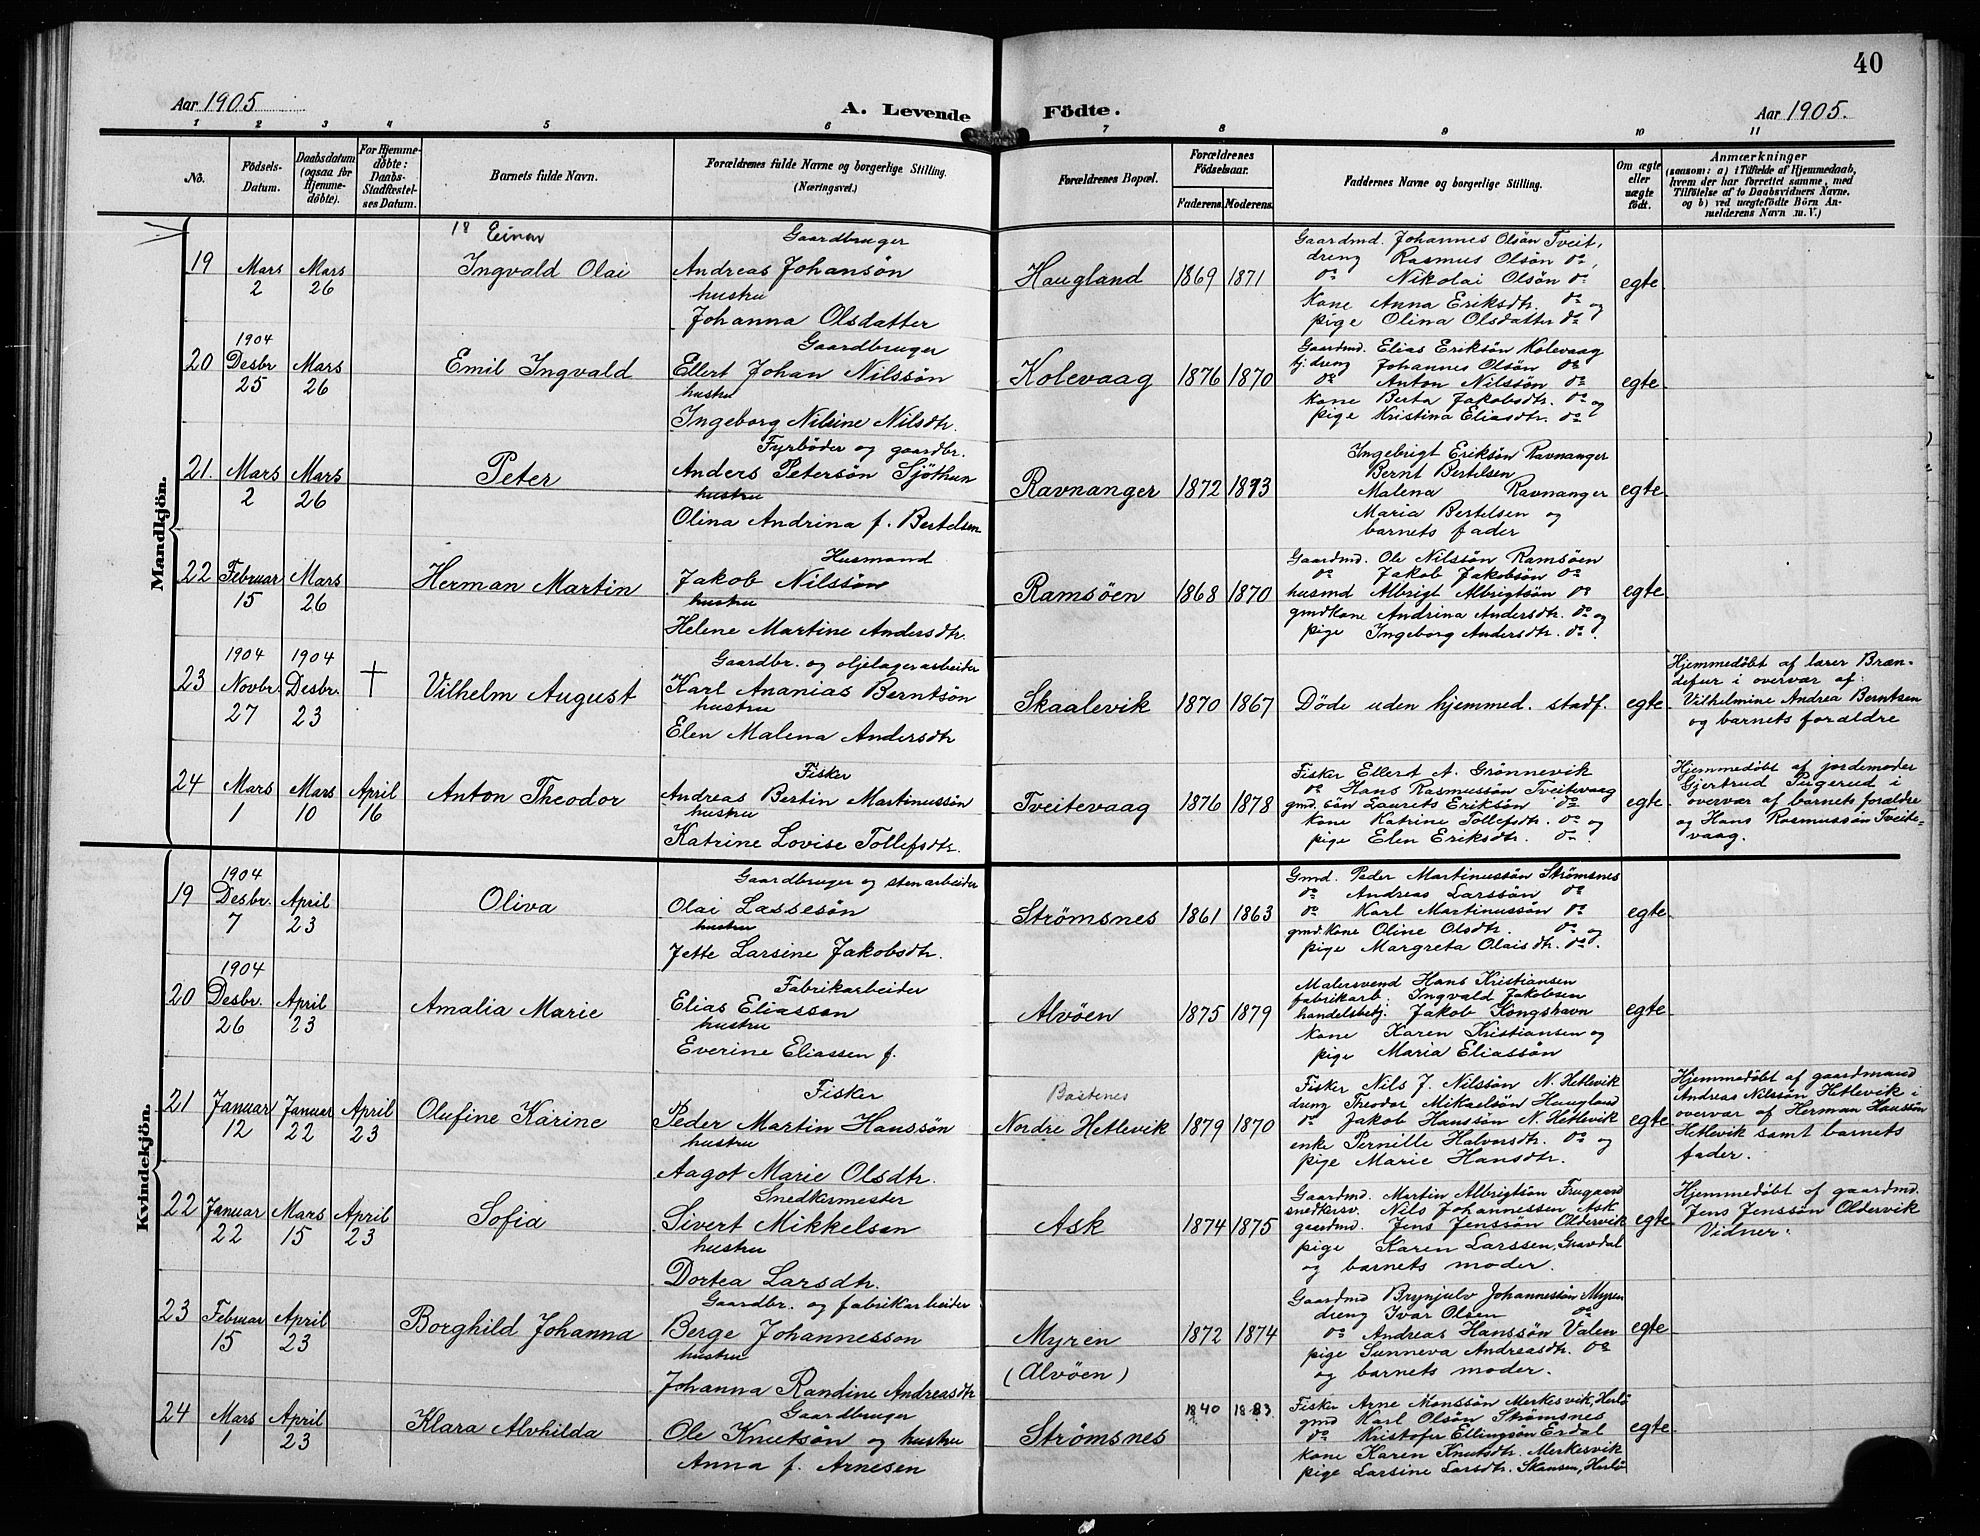 40
Aar 1905
A. Levende
Födte.
Aar 1905.
1 2 3 4 5 6 7 8 9 10 11
No.
Födsels-
Datum.
Daabsdatum
(ogsaa for
Hjemme-
döbte).
For Hjemme-
döbte:
Daabs-
Stadfæstel-
ses Datum.
Barnets fulde Navn.
Forældrenes fulde Navne og borgerlige Stilling.
(Næringsvei.)
Forældrenes Bopæl.
Forældrenes
Födselsaar.
Faderens. Moderens.
Faddernes Navne og borgerlige Stilling.
Om ægte
eller
uægte
födt.
Anmærkninger
(saasom: a) i Tilfælde af Hjemmedaab,
hvem der har forrettet samme, med
Tilföielse af to Daabsvidners Navne,
og b) ved uægtefödte Börn An-
melderens Navn m. V.)
Mandkjön.
19
Mars
2
Mars
26
18 Einar
Ingvald Olai
Gaardbruger
Andreas Johansön
hustru
Johanna Olsdatter
Haugland
1869 1871
Gaardmd. Johannes Olsön Tveit,
dreng Rasmus Olsön do,
do Nikolai Olsön do
kone Anna Eriksdtr. do og
pige Olina Olsdatter do
egte
20
1904
Desbr
25
Mars
26
Emil Ingvald
Gaardbruger
Ellert Johan Nilssön
hustru
Ingeborg Nilsine Nilsdtr.
Kolevaag
1876 1870
Gaardmd. Elias Eriksön Kolevaag
tj. dreng Johannes Olsön do
do Anton Nilssön do
kone Berta Jakobsdtr. do og
pige Kristina Eliasdtr. do
egte
21.
Mars
2
Mars
26
Peter
Fyrböder og gaardbr.
Anders Petersön Sjöthun
hustru
Olina Andrina f. Bertelsen
Ravnanger
1872 1873
Ingebrigt Eriksön Ravnanger
Bernt Bertelsen
Malena Ravnanger
Maria Bertelsen og
barnets fader
egte
22
Februar
15
Mars
26
Herman Martin
Husmand
Jakob Nilssön
hustru
Helene Martine Andersdtr.
Ramsöen
1868 1870
Gaardmd. Ole Nilssön Ramsöen
do Jakob Jakobsön do
husmd Albrigt Albrigtsön do
gmdkone Andrina Andersdtr. do og
pige Ingeborg Andersdtr. do.
egte
23
1904
Novbr.
27
1904
Desbr.
23
†
Vilhelm August
Gaardbr. og oljelagerarbeider
Karl Ananias Berntsön
hustru
Elen Malena Andersdtr
Skaalevik
1870 1867
Döde uden hjemmed. stadf.
egte
Hjemmedöbt af lærer Bræn-
defur i overvær af:
Vilhelmine Andrea Berntsen
og barnets forældre
24
Mars
1
Mars
10
April
16
Anton Theodor
Fisker
Andreas Bertin Martinussön
hustru
Katrine Lovise Tollefsdtr.
Tveitevaag
1876 1878
Fisker Ellert A. Grönnevik
do Hans Rasmussön Tveitevaag
gmd. sön Laurets Eriksön do
kone Katrine Tollefsdtr. do og
pige Elen Eriksdtr. do
egte
Hjemmedöbt af jordemoder
Gjertrud Pugerud i
overvær af barnets forældre
og Hans Rasmussön Tveite-
vaag.
Kvindekjön.
19
1904
Desbr.
7
April
23
Oliva
Gaardbruger og stenarbeider
Olai Lassesön
hustru
Jette Larsine Jakobsdtr.
Strömsnes
1861 1863
Gmd. Peder Martinussön Strömsnes
do Andreas Larssön do
do Karl Martinussön do
gmd.kone Oline Olsdtr. do og
pige Margreta Olaisdtr. do.
egte
20
1904
Desbr.
26
April
23
Amalia Marie
Fabrikarbeider
Elias Eliassøn
hustru
Everine Eliassen f.
Alvöen
1875 1879
Malersvend Hans Kristiansen
fabrikarb. Ingvald Jakobsen
handelsbetj. Jakob Kongshavn
kone Karen Kristiansen og
pige Maria Eliassön
egte
21
Januar
12
Januar
22
April
23
Olufine Karine
Fisker
Peder Martin Hanssön
hustru
Aagot Marie Olsdtr.
Bastenes
Nordre Hetlevik
1879 1870
Fisker Nils J. Nilssön N. Hetlevik
dreng Theodor Mikaelsön Haugland
do Jakob Hanssön N. Hetlevik
enke Pernille Halvorsdtr. do og
pige Marie Hansdtr.
egte
Hjemmedöbt af gaardmand
Andreas Nilssön Hetlevik i
overvær af Herman Hanssön
Hetlevik samt barnets
fader.
22
Januar
22
Mars
15
April
23
Sofia
Snedkermester
Sivert Mikkelsen
hustru
Dortea Larsdtr.
Ask
1874 1875
Gaardmd. Martin Albrigtsön Frugaard
snedkersv. Nils Johannessen Ask
gaardmd. Jens Jenssön Oldervik
pige Karen Larssen, Gravdal
og barnets moder.
egte
Hjemmedöbt af gaardmd.
Jens Jenssön Oldervik
Vidner:
23
Februar
15
April
23
Borghild Johanna
Gaardbr. og fabrikarbeider
Berge Johannesson
hustru
Johanna Randine Andreasdtr
Myren
(Alvöen)
1872 1874
Gaardmd Brynjulv Johannessön Myren
dreng Ivar Olsen do
do Andreas Hanssön Valen
pige Sunneva Andreasdtr. do
og barnets moder.
egte
24
Mars
1
April
23
Klara Alvhilda
Gaardbruger
Ole Knutsön og hustru
Anna f. Arnesen
Strömsnes
1840 1883
Fisker Arne Monssön Merkesvik, Herlö
gmd Karl Olsön Strömsnes
do Kristofer Ellingsön Erdal
kone Karen Knutsdtr. Merkesvik
pige Larsine Larsdtr. Skansen, Herlö
egte